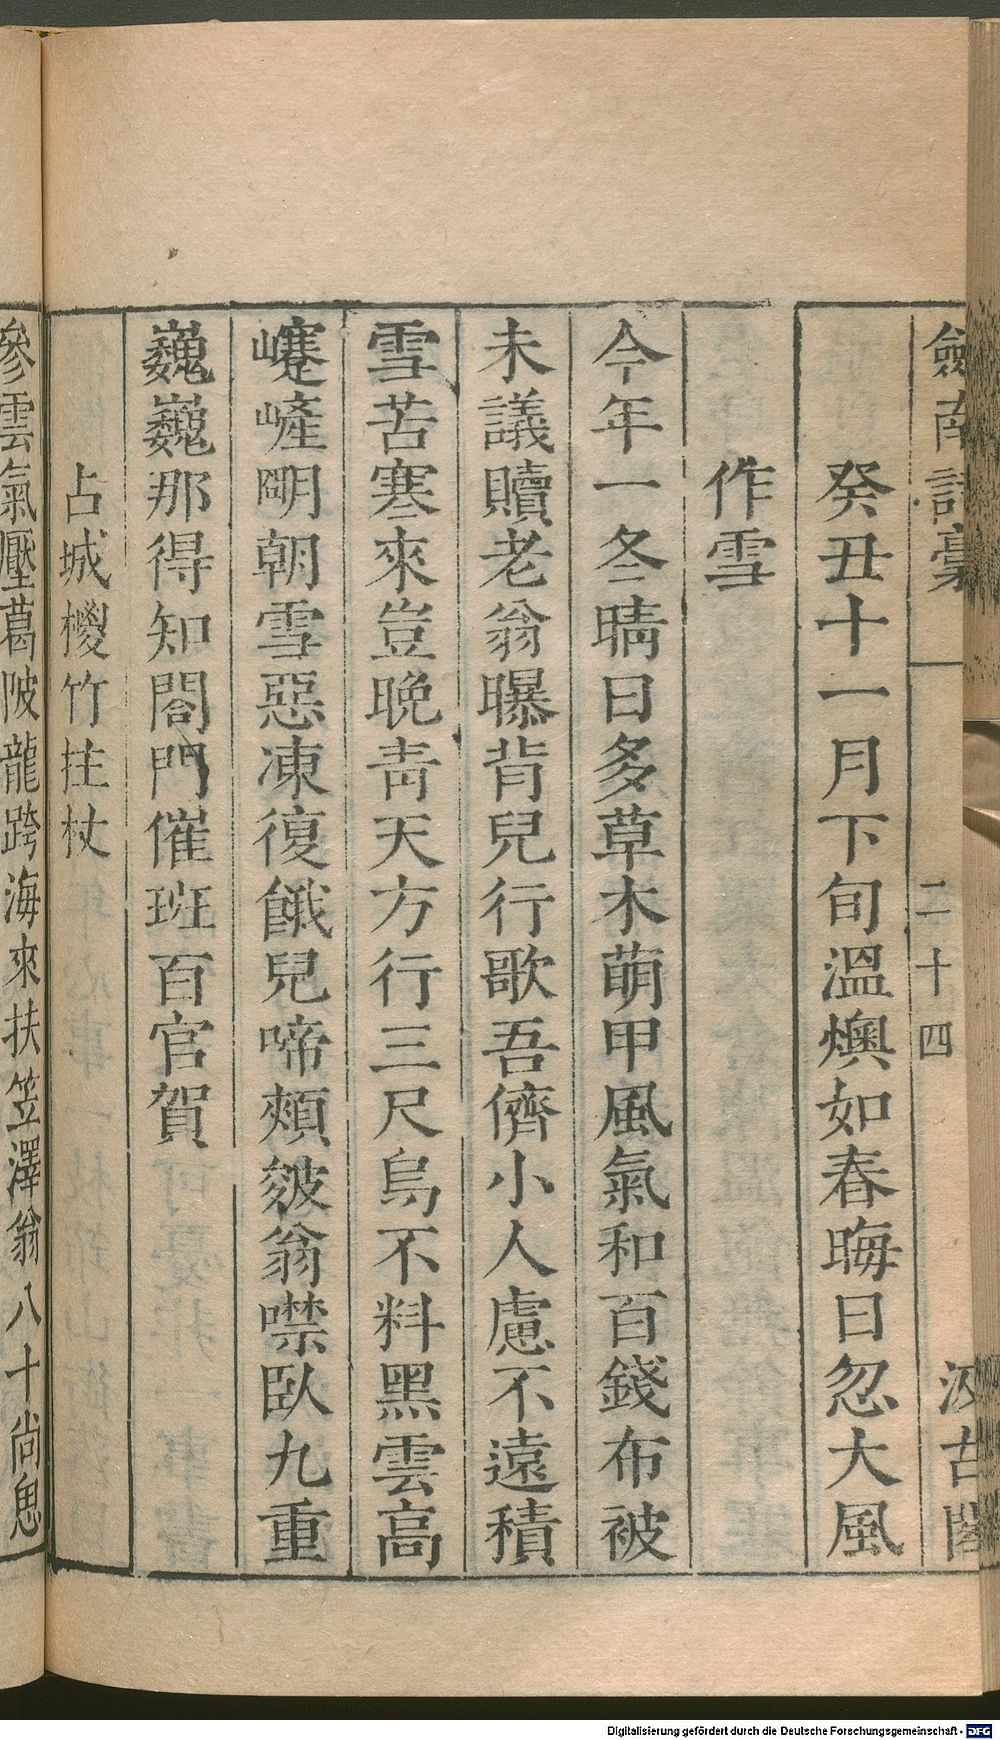 劍南詩稾 二十四 汲古閣
癸丑十一月下旬溫燠如春晦日忽大風
作雪
今年一冬晴日多草木萌甲風氣和百錢布被
未議贖老翁曝背兒行歌吾儕小人慮不遠積
雪苦寒來豈晚靑天方行三尺烏不料黑雲高
㠥嵼明朝雪惡凍復餓兒啼頰皴翁噤臥九重
巍巍那得知閤門催班百官賀
占城椶竹拄杖
參雲氣壓葛陂龍跨海來扶笠澤翁八十尚思
Digitalisierung gefördert durch die Deutsche Forschungsgemeinschaft - DFG